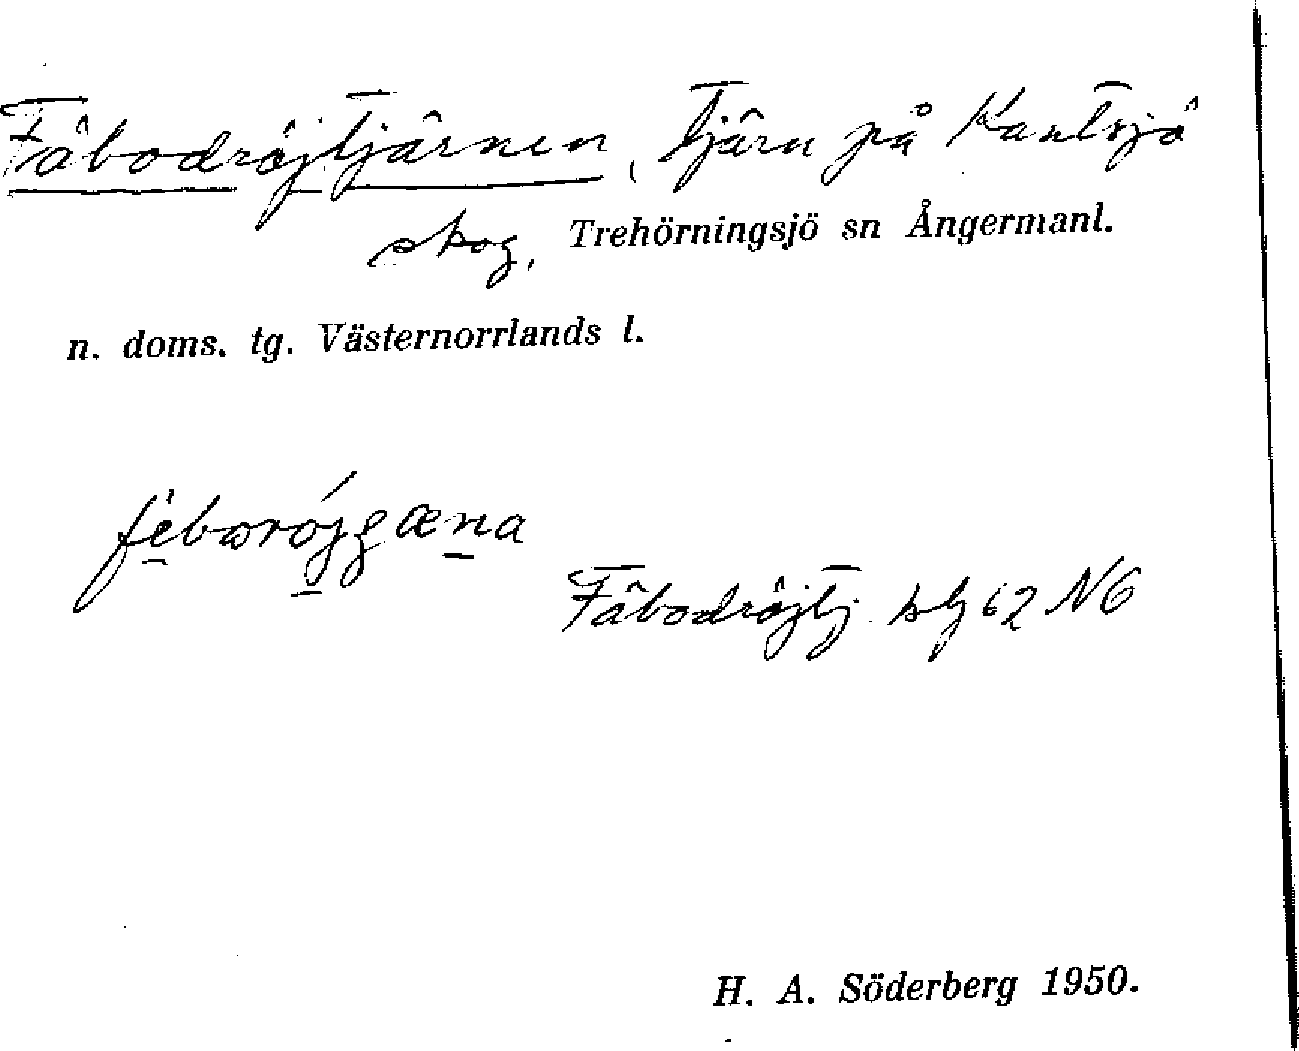 Fäbodröjtjärnen, tjärn på Kantsjö
skog, Trehörningsjö sn Ångermanl.
n. doms. tg. Västernorrlands l.
Fäbodröjtj. blj 62 NG
H. A. Söderberg 1950.